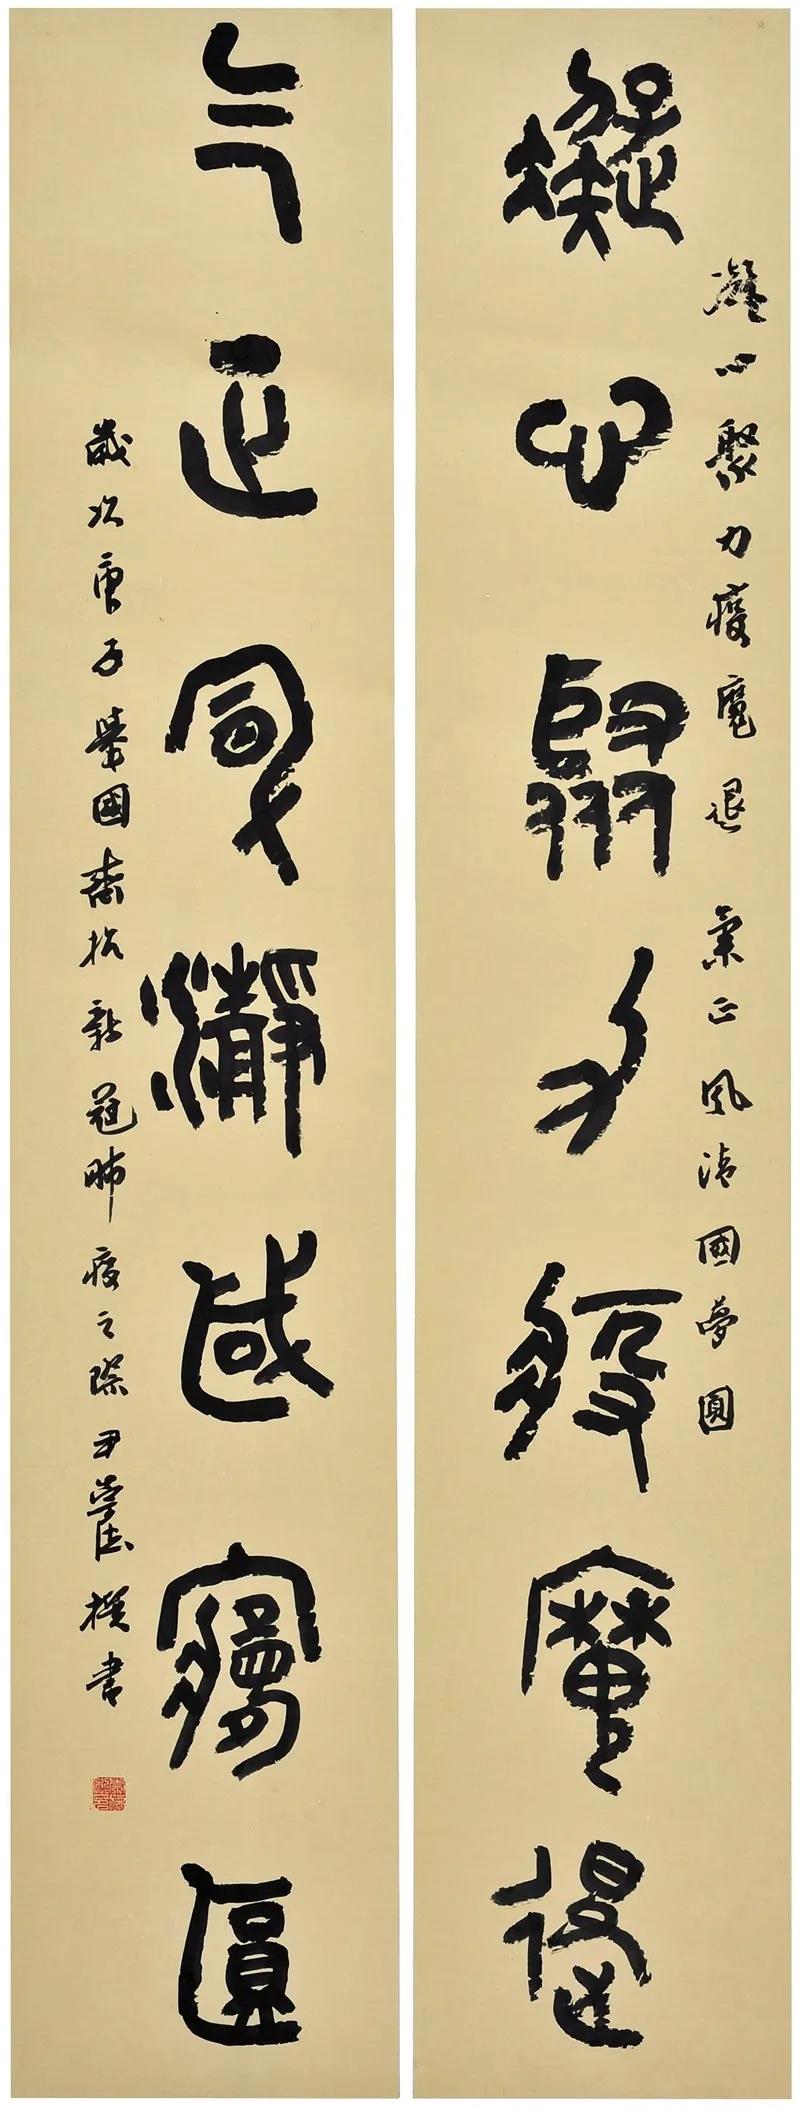 凝心聚力疫魔退
凝心聚力疫魔退 氣正風清國夢圓
气正風瀞國夢圓
歲次庚子舉國齊抗新冠肺疫之際尹
撰書